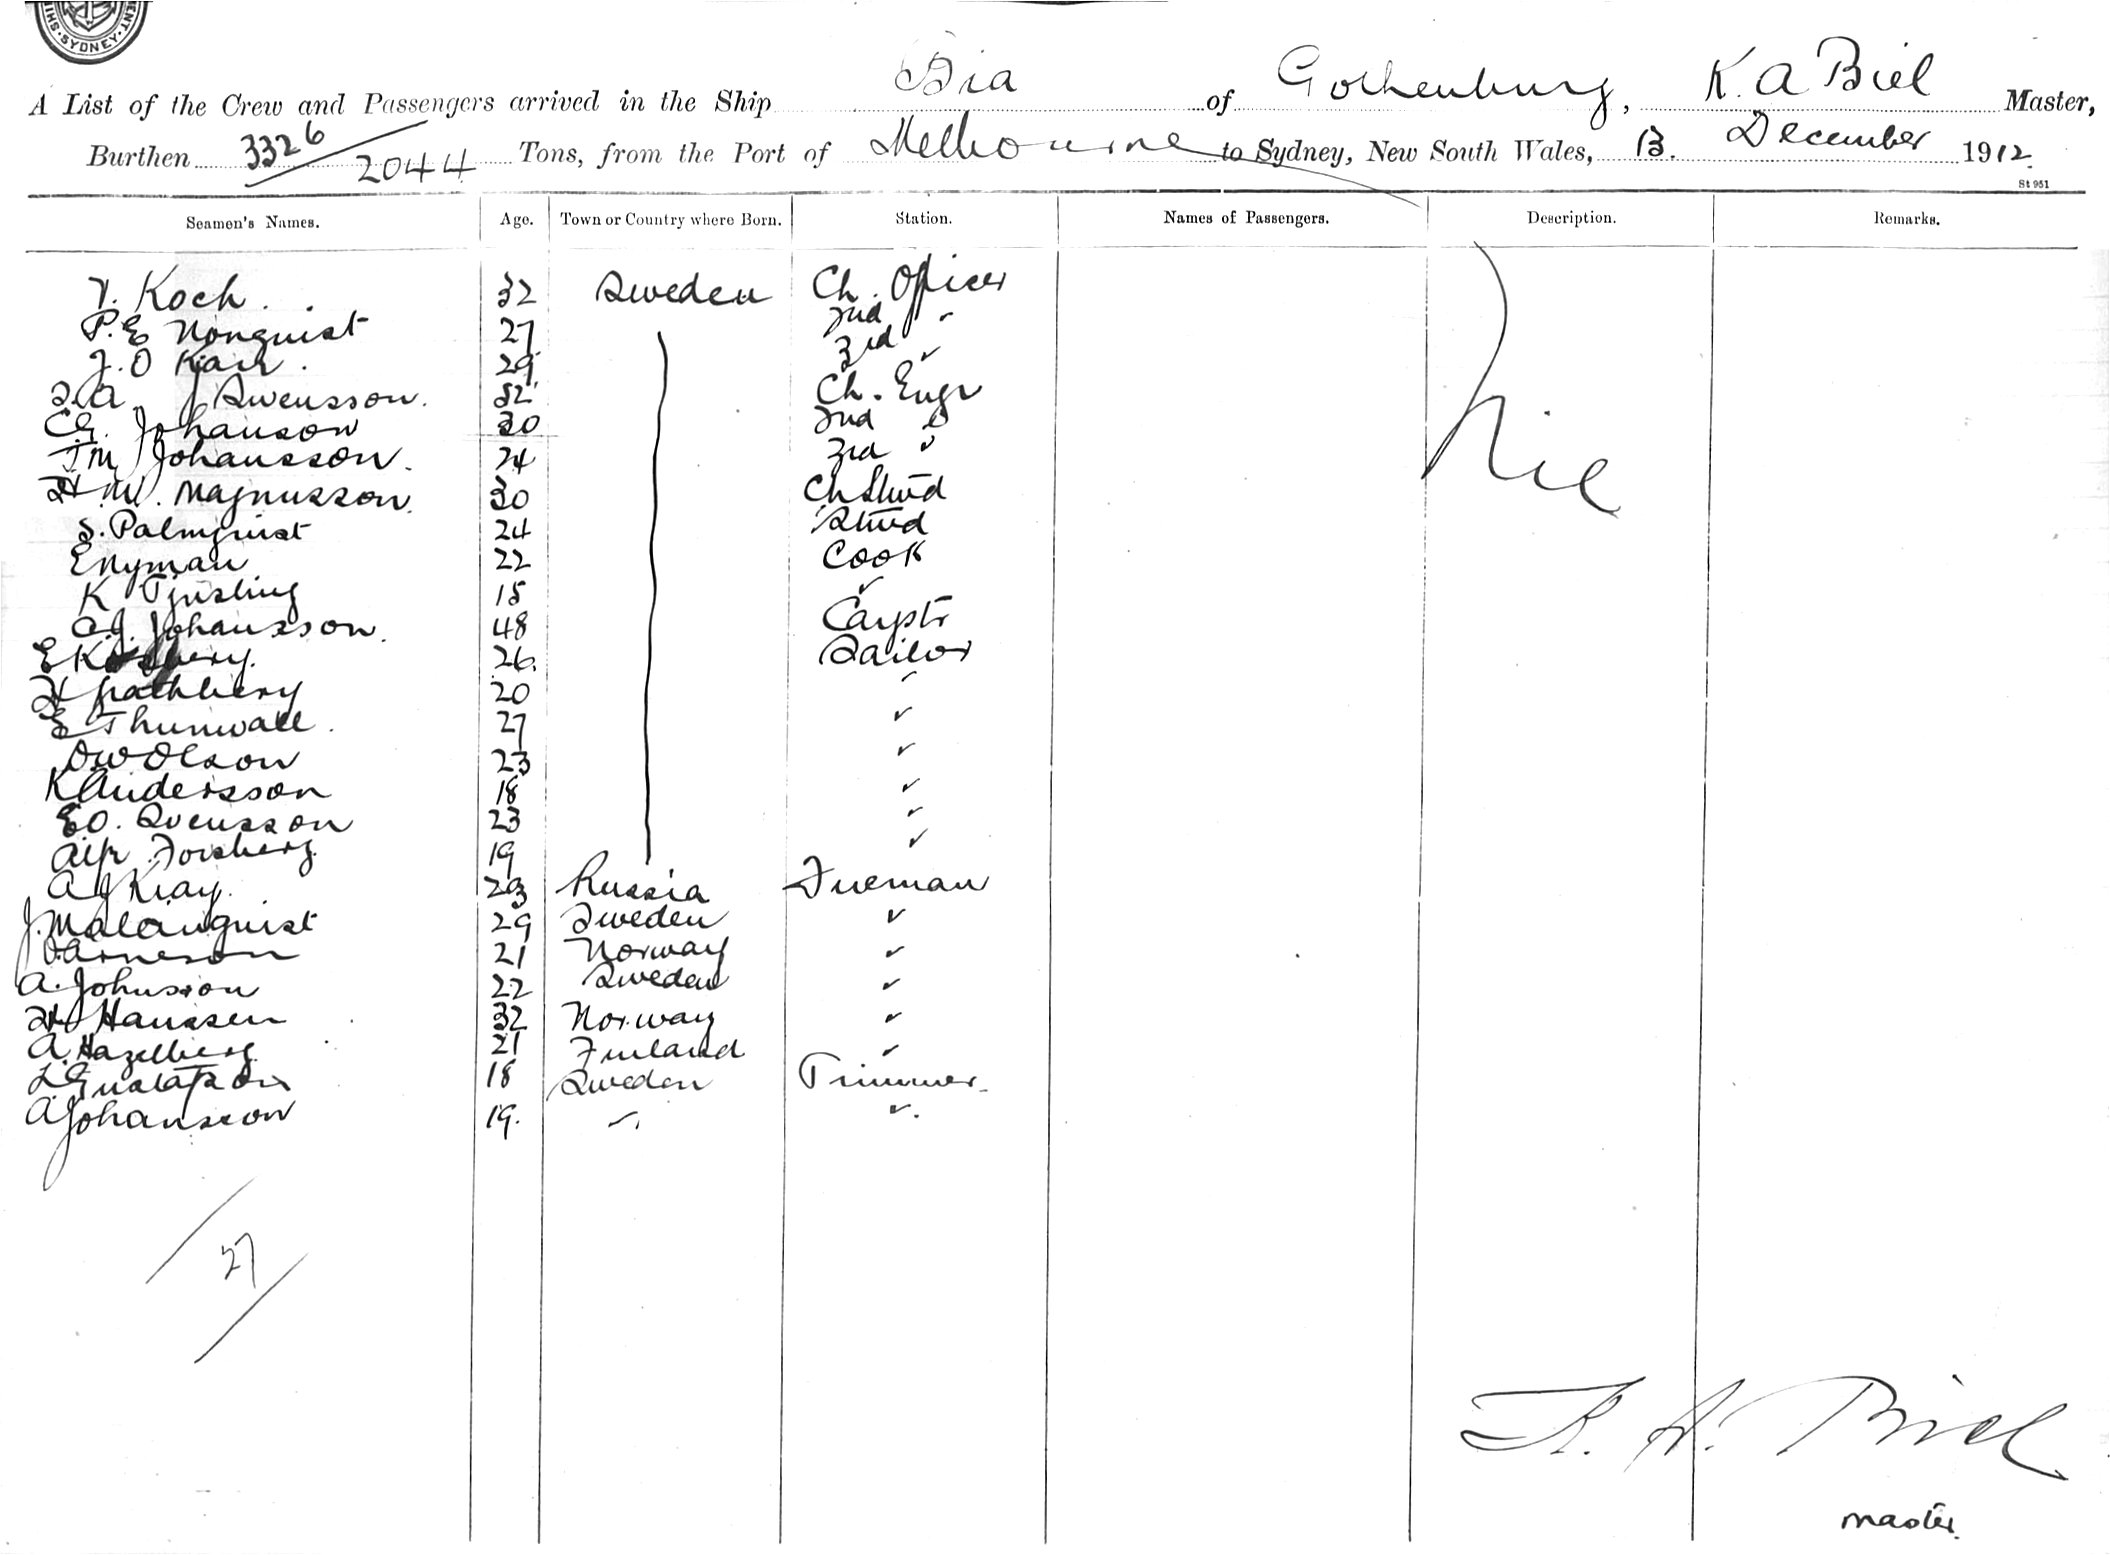 SYDNEY
A List of the Crew and Passengers arrived in the Ship Bia of Gothenburg, K. A Biel Master,
Burthen 3326 / 2044 Tons, from the Port of Melbourne to Sydney, New South Wales, 13. December 1912.
St 951
Seamen's Names. Age. Town or Country where Born. Station. Names of Passengers. Description. Remarks.
V. Koch. 32 Sweden Ch. Officer
P. E Norquist 27 2nd "
J. O Karr. 29 3rd "
Swensson. 32 Ch. Engr
C. G. Johanson 30 2nd "
J M Johansson. 24 3rd "
H. W. Magnusson. 30 Ch Stwd
S. Palmquist 24 Stwd
E Nyman 22 Cook
K 15 "
C. J. Johansson. 48 Carptr
E 26. Sailor
H 20 "
E Thunwall. 27 "
O W Olson 23 "
K Andersson 18 "
E. O. Svensson 23 "
Alfr. Forsberg 19 "
A J Kray. 23 Russia Fireman
J. Malanquist 29 Sweden "
Arneson 21 Norway "
A. Johnsson 22 Sweden "
H Hanssen 32 Norway "
A. Hazelberg 21 Finland "
L. Gustafson 18 Sweden Trimmer
A Johansson 19. " "
Nil
27
K. A. Biel
master.